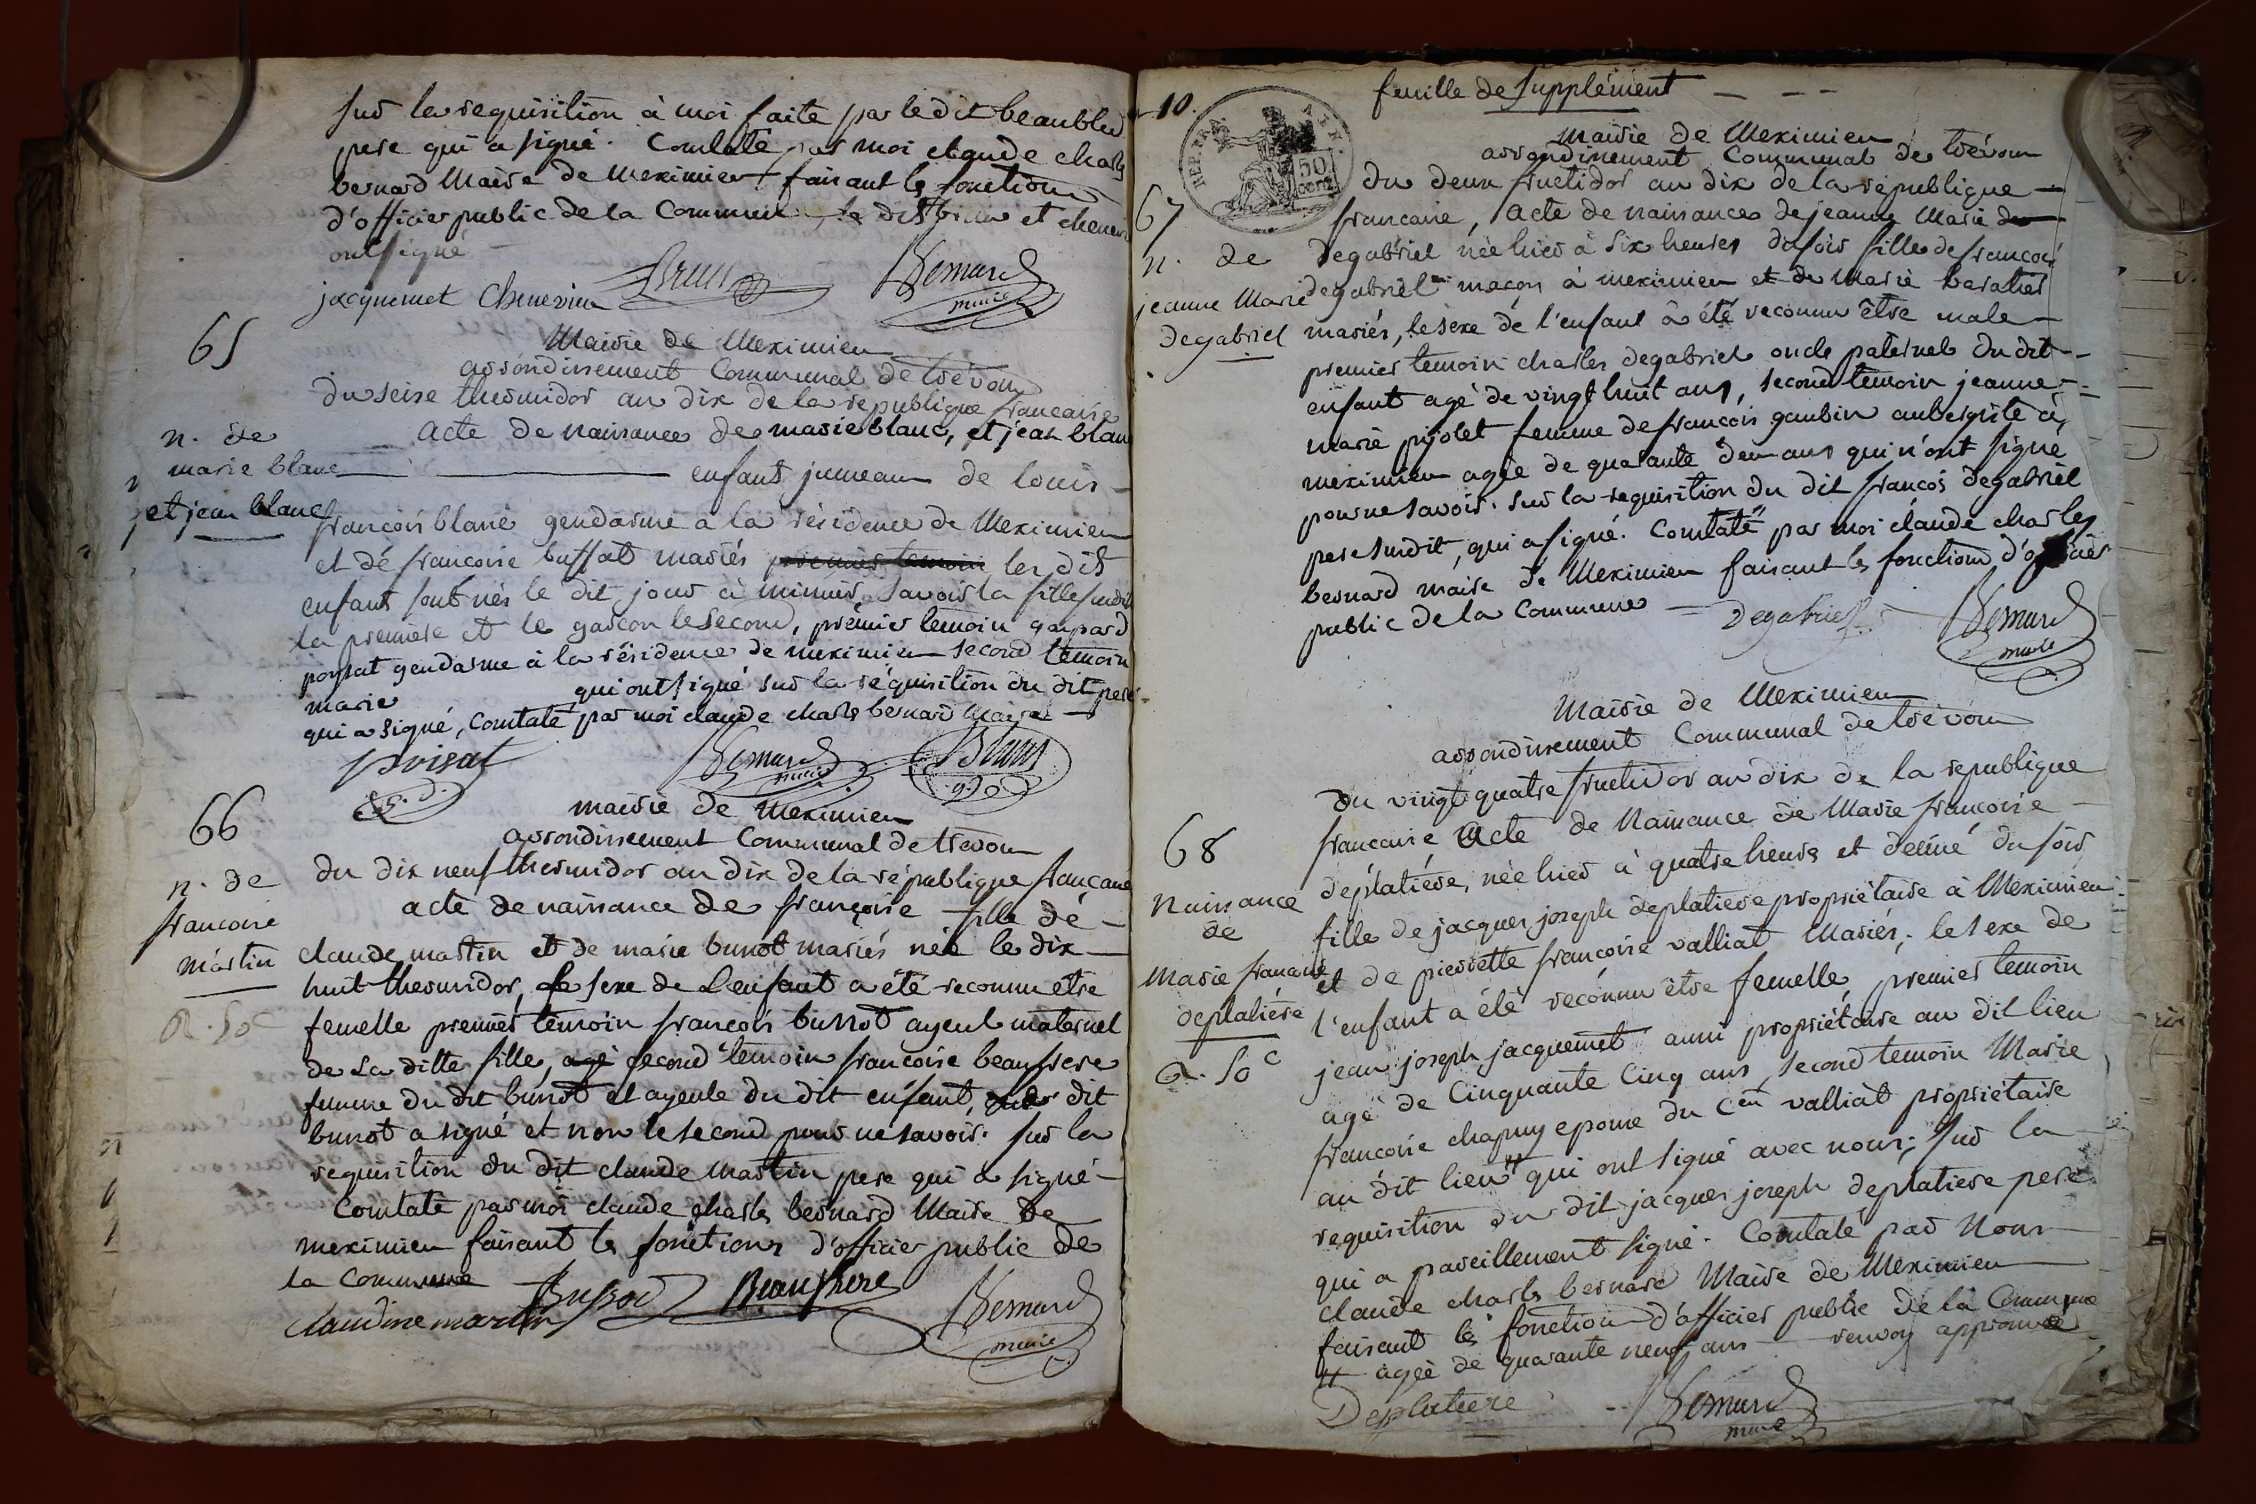 sur la requisition à moi faite par le dit beaubled
pere qui a signé. Constaté par moi claude charles
bernard Maire de Meximieu faisant les fonctions
d'officier public de la Commune, le dit brun et chenevier
ont signé
jacquemet Chenevier Brun Bernard
maire
65
Mairie de Meximieu
arrondissement Communal de trévoux
du seize thermidor an dix de la republique francaise
n. de
marie blanc
et jean blanc
acte de naissance de marie blanc, et jean blanc
enfants jumeaux de louis
francois blanc gendarme a la résidence de Meximieu
et de francoise buffat mariés premier temoin les dits
enfants sont nés le dit jour à minuit, savoir la fille susdite
la premiere et le garcon le second, premier temoin gaspard
poysat gendarme à la résidence de meximieu second temoin
marie qui ont signé sur la réquisition du dit pere
qui a signé, Constaté par moi claude charles bernard Maire
poisat Bernard Blanc
maire
66
mairie de Meximieu
arrondissement Communal de trevoux
n. de
francoise
martin
G. 50c
du dix neuf thermidor an dix de la république francaise
acte de naissance de françoise fille de
claude martin et de marie bunot mariés née le dix
huit thermidor, le sexe de l'enfant a été reconnu etre
femelle premier temoin francois bunot ayeul maternel
de la ditte fille, agé second temoin francoise beaufrere
femme du dit bunot et ayeule du dit enfant, le dit
bunot a signé et non le second pour ne savoir. sur la
requisition du dit claude martin pere qui a signé
Constaté par moi claude charles bernard Maire de
meximieu faisant les fonctions d'officier public de
la commune
claudine martin Beaufrere Bernard
maire
10.
feuille de Supplément
REP. FRA.
50
cent.
Mairie de Meximieu
arrondissement Communal de trévoux
67
n. de
jeanne Marie
degabriel
du deux fructidor an dix de la republique
francaise, Acte de naissance de jeanne Marie de
degabriel née hier à six heures du soir fille de francois
degabriel macon à meximieu et de Marie baratier
mariés, le sexe de l'enfant a été reconnu être male
premier temoin charles degabriel oncle paternel du dit
enfant agé de vingt huit ans, second temoin jeanne
marie pijolet femme de francois gaubin aubergiste à
meximieu agée de quarante deux ans qui n'ont signé
pour ne savoir. sur la requisition du dit francois degabriel
pere susdit, qui a signé. Constaté par moi claude charles
bernard maire de Meximieu faisant les fonctions d'officier
public de la Commune
Degabriel Bernard
maire
Mairie de Meximieu
arrondissement Communal de trévoux
68
Naissance
de
Marie francoise
deplatiére
G. 50c
du vingt quatre fructidor an dix de la republique
francaise Acte de Naissance de Marie francoise
deplatiere, née hier à quatre heures et demie du soir
fille de jacques joseph deplatiere propriétaire à Meximieu
et de pierrette francoise valliat Mariés; le sexe de
l'enfant a été reconnu être femelle, premier temoin
jean joseph jacquemet aussi propriétaire au dit lieu
agé de Cinquante Cinq ans, second temoin Marie
francoise chapuy epouse du Cen valliat propriétaire
au dit lieu # qui ont signé avec nous; sur la
requisition du dit jacques joseph deplatiere pere
qui a pareillement signé. Constaté par Nous
claude charles bernard Maire de Meximieu
faisant les fonctions d'officier public de la Commune
# agée de quarante neuf ans renvoy approuvé
Deplatiere Bernard
maire